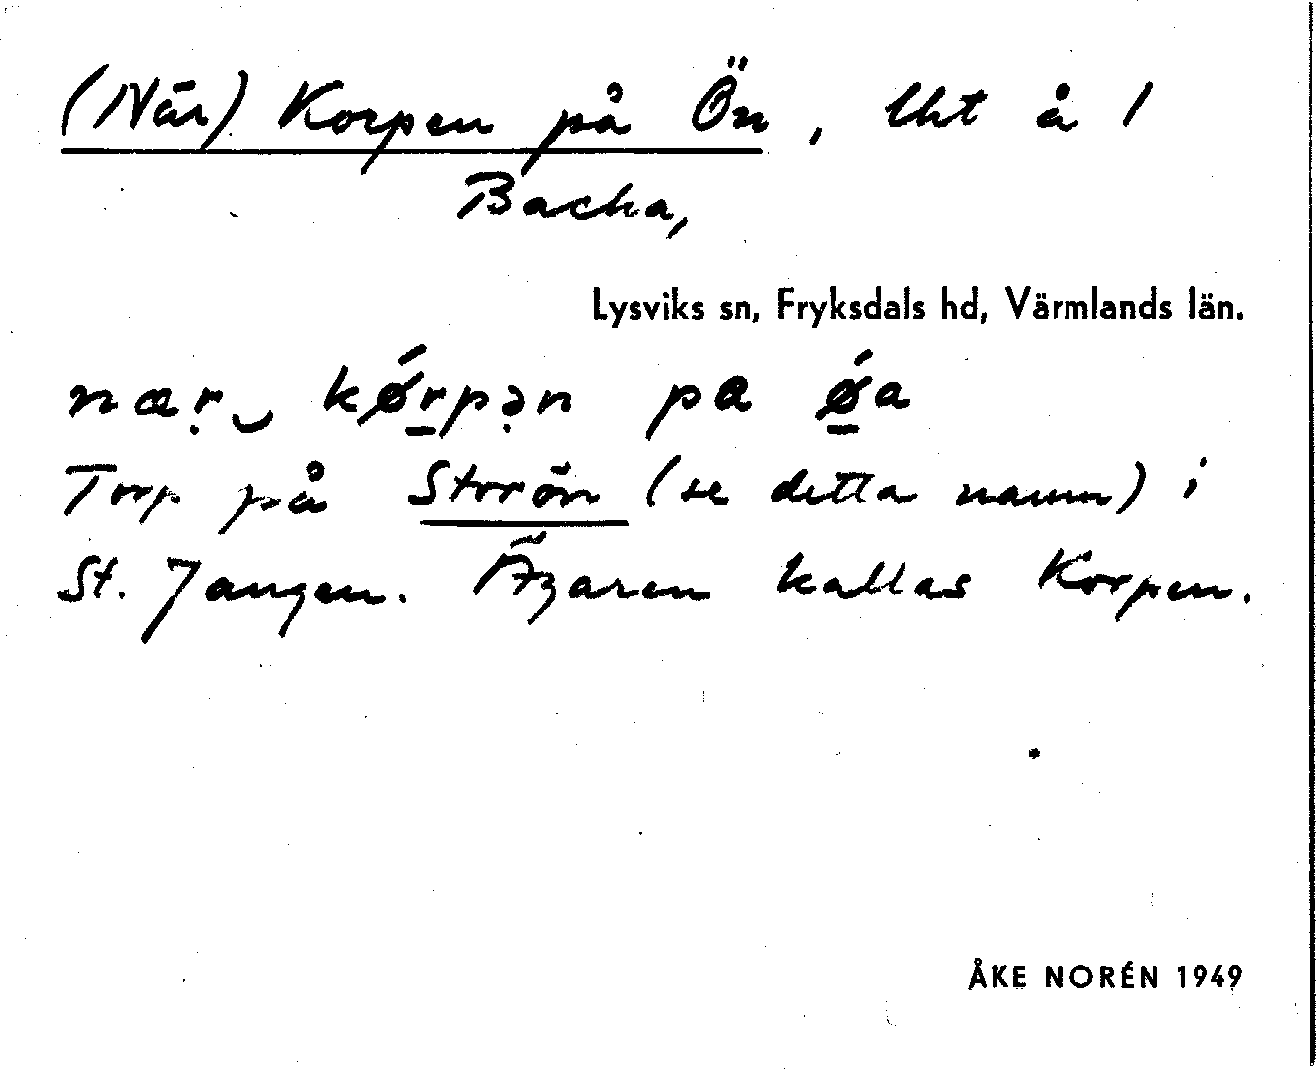 (När) Korpen på Ön, lht å 1
Backa,
Lysviks sn, Fryksdals hd, Värmlands län.
næṛ‿ kǿ̱rpə̣n pa ǿ̱a
Torp på Storön (se detta namn) i
St. Jangen. Ägaren kallas Korpen.
ÅKE NORÉN 1949